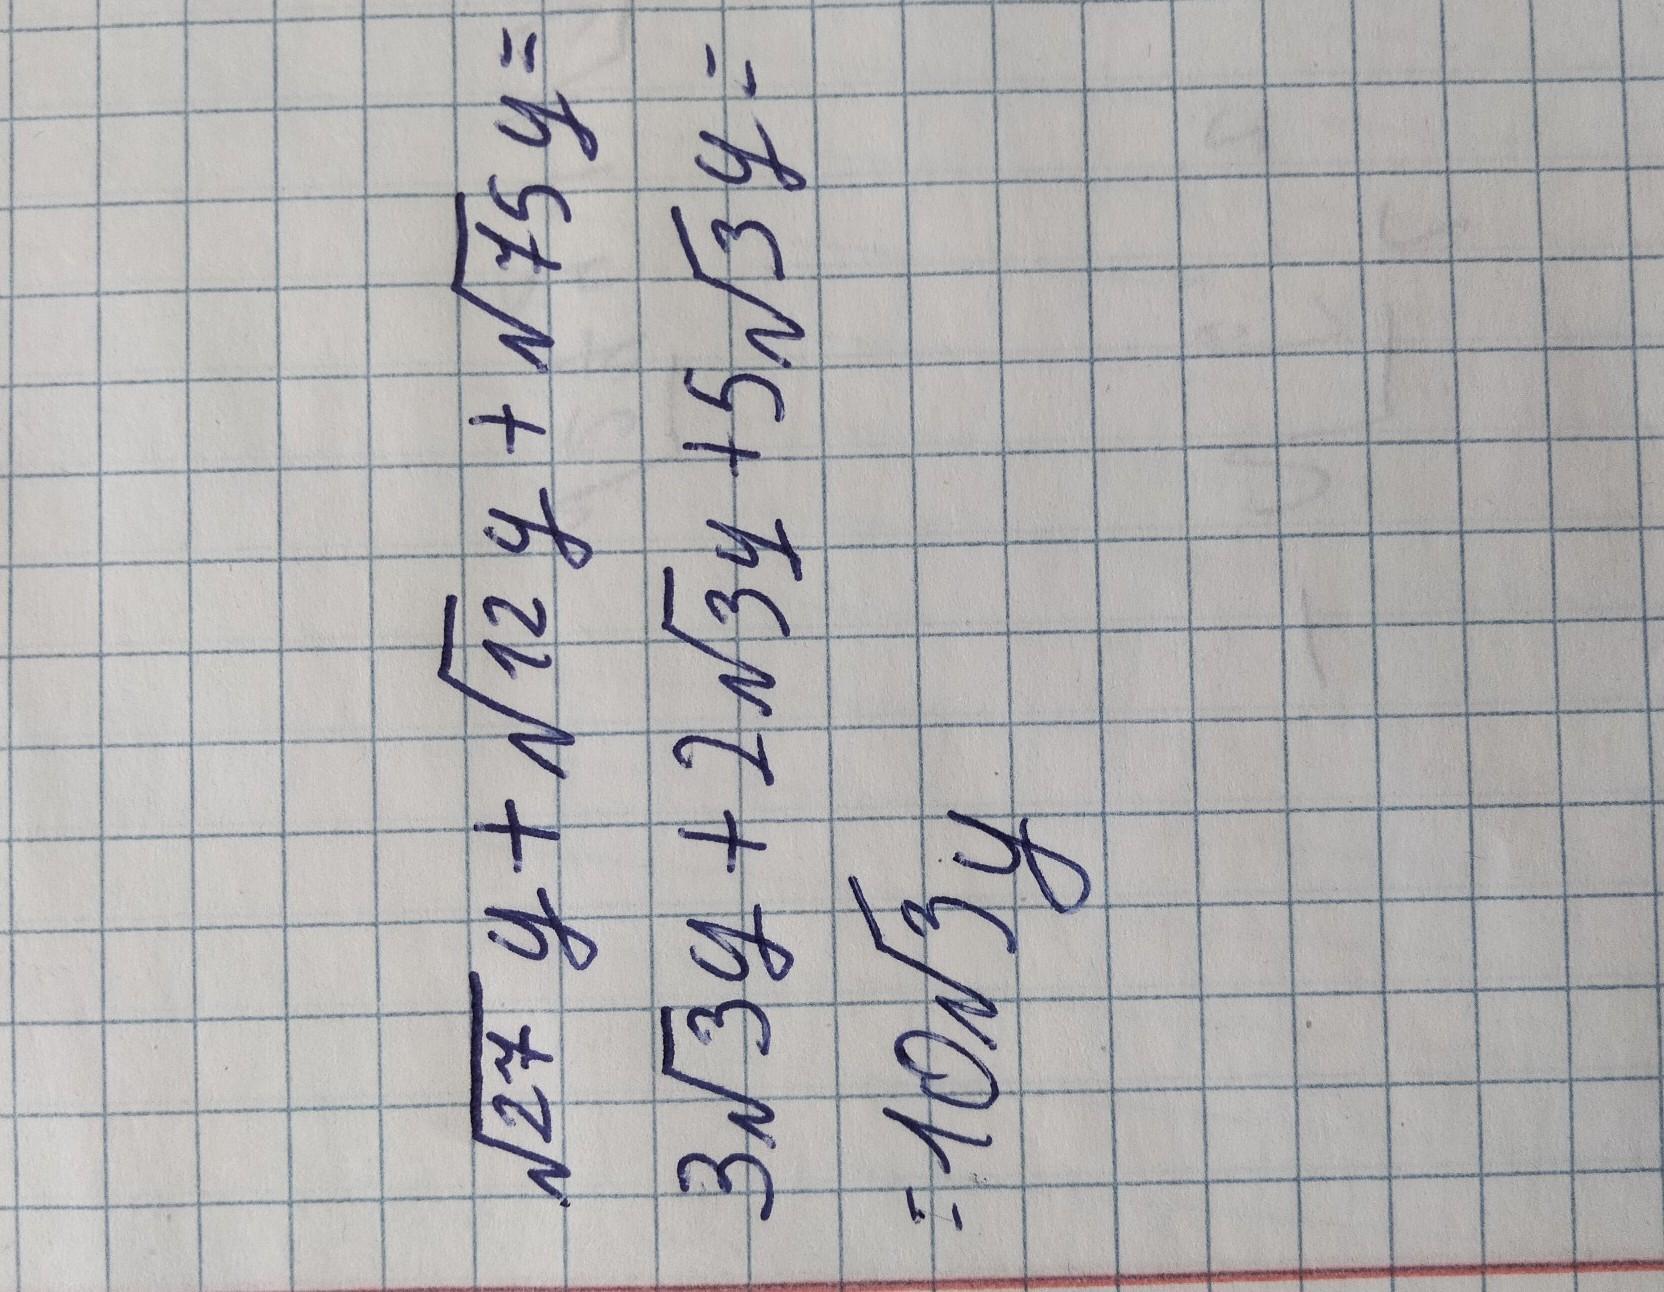 √27 y + √12 y + √75 y =
3√3 y + 2√3 y + 5√3 y =
= 10√3 y